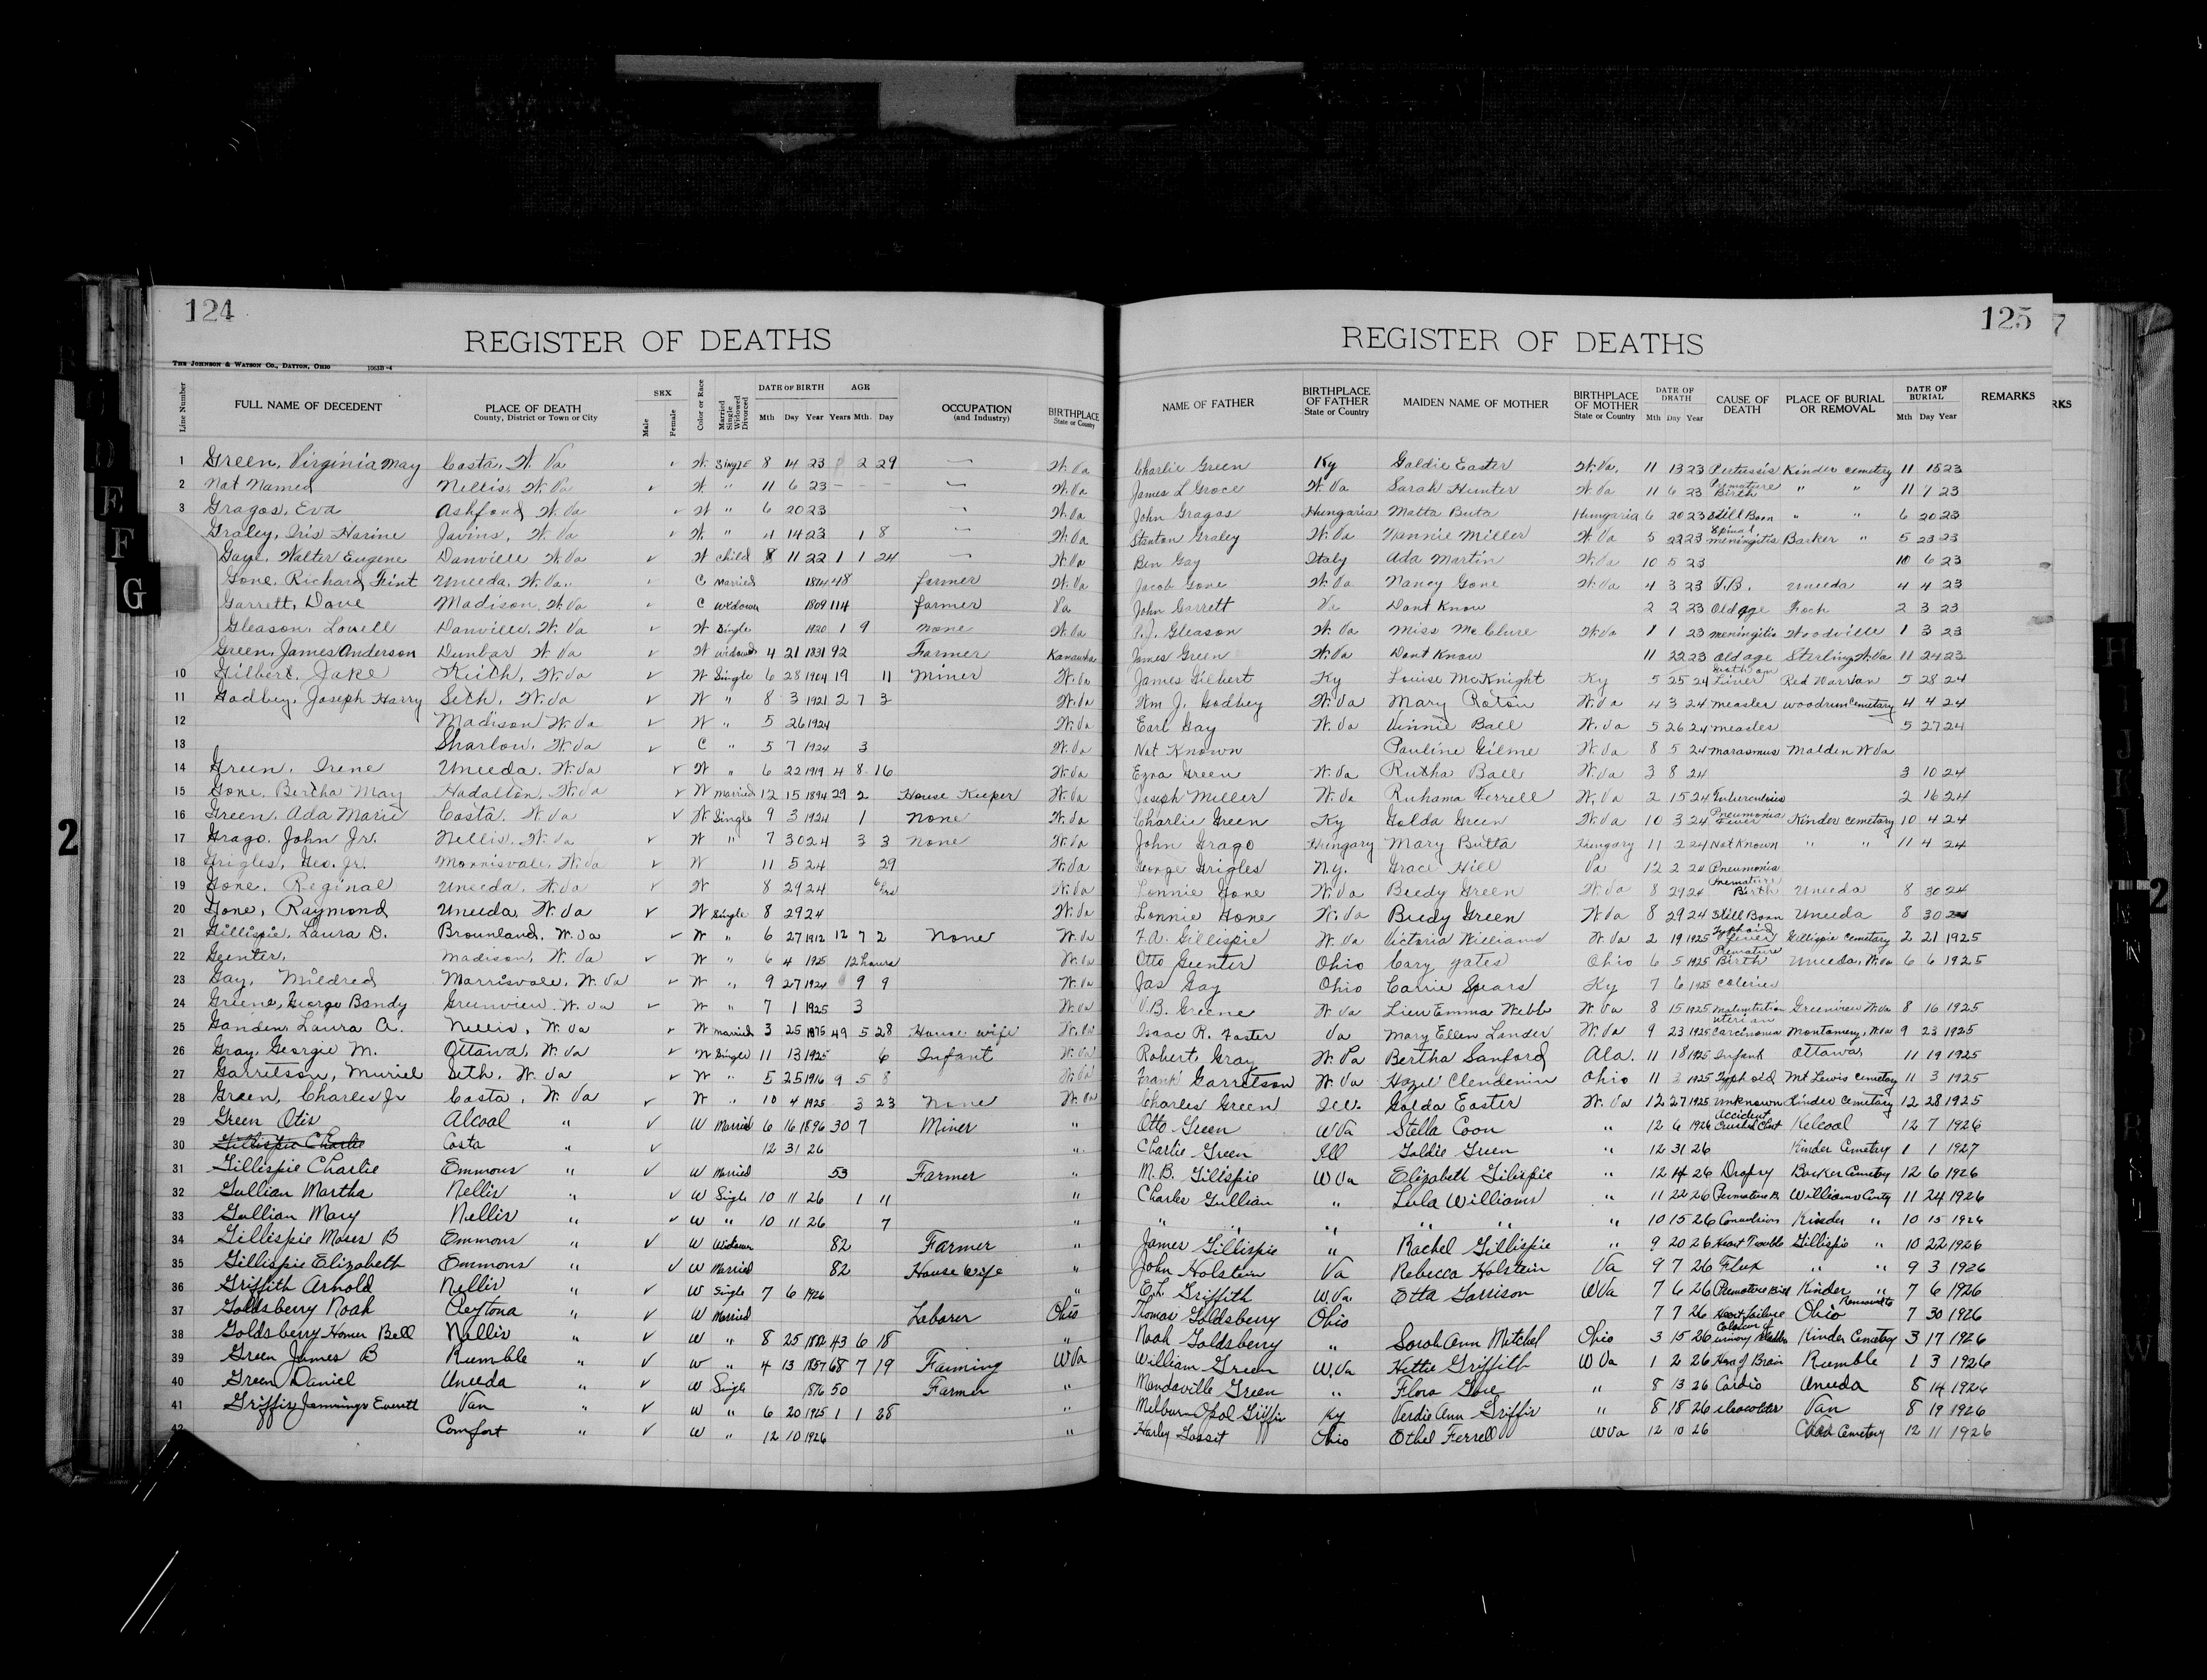 124
REGISTER OF DEATHS
THE JOHNSON & WATSON CO., DAYTON, OHIO 1063B-4
Line Number FULL NAME OF DECEDENT PLACE OF DEATH County, District or Town or City SEX Male Female Color or Race Married Single Widowed Divorced DATE OF BIRTH Mth Day Year AGE Years Mth. Day OCCUPATION (and Industry) BIRTHPLACE State or Country
1 Green, Virginia May Costa, W. Va W. Single 8 14 23 2 29 W. Va
2 Not Named Nellis, W. Va W. " 11 6 23 - - - W. Va
3 Gragos, Eva Ashford, W. Va W " 6 20 23 W. Va
Graley, Iris Harine Javins, W. Va W. " 4 14 23 1 8 W. Va
Gaye, Walter Eugene Danville W. Va W child 8 11 22 1 1 24 W. Va
Gone, Richard Flint Uneeda, W. Va. C Married 48 farmer W. Va
Garrett, Dave Madison, W. Va C Widower 1809 114 farmer Va
Gleason, Lowell Danville, W. Va W Single 1920 1 9 none W. Va
Green, James Anderson Dunbar W. Va W widowed 4 21 1831 92 Farmer Kanawha
10 Gilbert, Jake Keith, W. Va W Single 6 28 1904 19 11 Miner W. Va
11 Godbey, Joseph Harry Seth, W. Va W " 8 3 1921 2 7 3 W. Va
12 Madison W. Va W " 5 26 1924 W. Va
13 Sharlow, W. Va C " 5 7 1924 3 W. Va
14 Green, Irene Uneeda, W. Va W " 6 22 1919 4 8 16 W. Va
15 Gone, Bertha May Hadalton, W. Va W married 12 15 1894 29 2 House Keeper W. Va
16 Green, Ada Marie Costa, W. Va W Single 9 3 1924 1 None W. Va
17 Grago, John Jr. Nellis, W. Va W " 7 30 24 3 3 None W. Va
18 Grigles, Geo. Jr. Morrisvale, W. Va W 11 5 24 29 W. Va
19 Gone, Reginal Uneeda, W. Va W 8 29 24 6 hrs W. Va
20 Gone, Raymond Uneeda, W. Va W Single 8 29 24 W. Va
21 Gillispie, Laura D. Brounland, W. Va W " 6 27 1912 12 7 2 None W. Va
22 Geenter, Madison, W. Va W " 6 4 1925 12 hours W. Va
23 Gay, Mildred Morrisvale, W. Va W " 9 27 1924 9 9 W. Va
24 Greene, George Bandy Greenview, W. Va W " 7 1 1925 3 W. Va
25 Ganden, Laura A. Nellis, W. Va W married 3 25 1875 49 5 28 House wife W. Va
26 Gray, Georgie M. Ottawa, W. Va W Single 11 13 1925 6 Infant W. Va
27 Garrelson, Muriel Seth, W. Va W " 5 25 1916 9 5 8 W. Va
28 Green, Charles Jr Costa, W. Va W " 10 4 1925 3 23 None W. Va
29 Green Otis Alcoal " W Married 6 16 1896 30 7 Miner "
30 Gillispie Charlie Costa " 12 31 26 "
31 Gillespie Charlie Emmons " W Married 53 Farmer "
32 Gullian Martha Nellis " W Single 10 11 26 1 11 "
33 Gullian Mary Nellis " W " 10 11 26 7 "
34 Gillispie Moses B Emmons " W Widower 82 Farmer "
35 Gillispie Elizabeth Emmons " W Married 82 House wife "
36 Griffith Arnold Nellis " W Single 7 6 1926 "
37 Goldsberry Noah Peytona " W Married Laborer Ohio
38 Goldsberry Homer Bell Nellis " W " 8 25 1882 43 6 18 "
39 Green James B Rumble " W " 4 13 1857 68 7 19 Farming W Va
40 Green Daniel Uneeda " W Single 1876 50 Farmer "
41 Griffis Jennings Everett Van " W " 6 20 1925 1 1 28 "
42 Comfort " W " 12 10 1926 "
125
REGISTER OF DEATHS
NAME OF FATHER BIRTHPLACE OF FATHER State or Country MAIDEN NAME OF MOTHER BIRTHPLACE OF MOTHER State or Country DATE OF DEATH Mth Day Year CAUSE OF DEATH PLACE OF BURIAL OR REMOVAL DATE OF BURIAL Mth Day Year REMARKS
Charlie Green Ky Goldie Easter W. Va. 11 13 23 Pertussis Kinder cemetery 11 15 23
James L Groce W. Va Sarah Hunter W. Va 11 6 23 Premature Birth " " 11 7 23
John Gragos Hungaria Matta Buta Hungaria 6 20 23 Still Born " " 6 20 23
Stanton Graley W. Va Nannie Miller W. Va 5 22 23 Spinal meningitis Barker " 5 23 23
Ben Gay Italy Ada Martin W. Va 10 5 23 10 6 23
Jacob Gone W. Va Nancy Gone W. Va 4 3 23 T.B. Uneeda 4 4 23
John Garrett Va Dont Know 2 2 23 Old age Foch 2 3 23
P.J. Gleason W. Va Miss McClure W. Va 1 1 23 meningitis Woodville 1 3 23
James Green W. Va Dont Know 11 22 23 Old age Sterling W. Va 11 24 23
James Gilbert Ky Louise McKnight Ky 5 25 24 Liver Red Warrior 5 28 24
Wm J. Godbey W. Va Mary Roton W. Va 4 3 24 measles woodrum Cemetary 4 4 24
Earl Gay W. Va Vinnie Ball W. Va 5 26 24 measles 5 27 24
Not Known Pauline Gilme W. Va 8 5 24 marasmus Malden W Va
Ezra Green W. Va Rutha Ball W. Va 3 8 24 3 10 24
Joseph Miller W. Va Ruhama Ferrell W. Va 2 15 24 Tuberculosis 2 16 24
Charlie Green Ky Golda Green W. Va 10 3 24 Pneumonia Fever Kinder Cemetery 10 4 24
John Grago Hungary Mary Butta Hungary 11 2 24 Not Known " " 11 4 24
George Grigles N.Y. Grace Hill Va 12 2 24 Pneumonia
Lonnie Gone W. Va Beedy Green W. Va 8 29 24 Premature Birth Uneeda 8 30 24
Lonnie Gone W. Va Beedy Green W Va 8 29 24 Still Born Uneeda 8 30 24
F.A. Gillispie W. Va Victoria Williams W. Va 2 19 1925 Typhoid fever Gillispie Cemetary 2 21 1925
Otto Geenter Ohio Cary Yates Ohio 6 5 1925 Premature Birth Uneeda, W. Va 6 6 1925
Jas Gay Ohio Carrie Spears Ky 7 6 1925 Coleries
V.B. Greene W. Va Lieu Emma Webb W. Va 8 15 1925 Malnutrition Greenview W. Va 8 16 1925
Isaac R. Foster Va Mary Ellen Lander W. Va 9 23 1925 uterian Carcinoma Montgomery, W. Va 9 23 1925
Robert Gray W. Va Bertha Sanford Ala. 11 18 1925 Infant Ottawa 11 19 1925
Frank Garretson W. Va Hazel Clendenin Ohio 11 3 1925 Typhoid Mt Lewis Cemetary 11 3 1925
Charles Green Ill. Golda Easter W. Va 12 27 1925 Unknown Kinder Cemetary 12 28 1925
Otto Green W Va Stella Coon " 12 6 1926 Accident Crushed Chest Kelcoal 12 7 1926
Charlie Green Ill Goldie Green " 12 31 26 Kinder Cemetry 1 1 1927
M. B. Gillispie W Va Elizabeth Gilispie " 12 14 26 Dropsy Barker Cemetry 12 6 1926
Charles Gullian " Lula Williams " 11 22 26 Premature B Williams Cemty 11 24 1926
" " " " " " 10 15 26 Convulsion Kinder " 10 15 1926
James Gillispie " Rachel Gillispie " 9 20 26 Heart Trouble Gillispie " 10 22 1926
John Holstein Va Rebecca Holstein Va 9 7 26 Flux " " 9 3 1926
E.L. Griffith W. Va. Etta Garrison W Va 7 6 26 Premature Birth Kinder " 7 6 1926
Thomas Goldsberry Ohio 7 7 26 Heart failure Removed to Ohio 7 30 1926
Noah Goldsberry " Sarah Ann Mitchel Ohio 3 15 26 urinary Bladder Kinder Cemetry 3 17 1926
William Green W. Va Hettie Griffith W Va 1 2 26 Hem of Brain Rumble 1 3 1926
Mandaville Green " Flora Gore " 8 13 26 Cardio Uneeda 8 14 1926
Melburn Opol Griffis Ky Verdie Ann Griffis " 8 18 26 Van 8 19 1926
Harley Gossit Ohio Ethel Ferrell W Va 12 10 26 Cemetery 12 11 1926
D
E
F
G
2
2
7
RKS
H
I
J
K
W